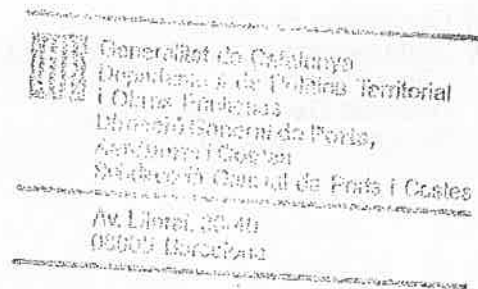 Generalitat de Catalunya
Departament de Política Territorial
i Obres Públiques
Direcció General de Ports,
Aeroports i Costes
Subdirecció General de Ports i Costes
Av. Litoral, 36-40
08005 Barcelona